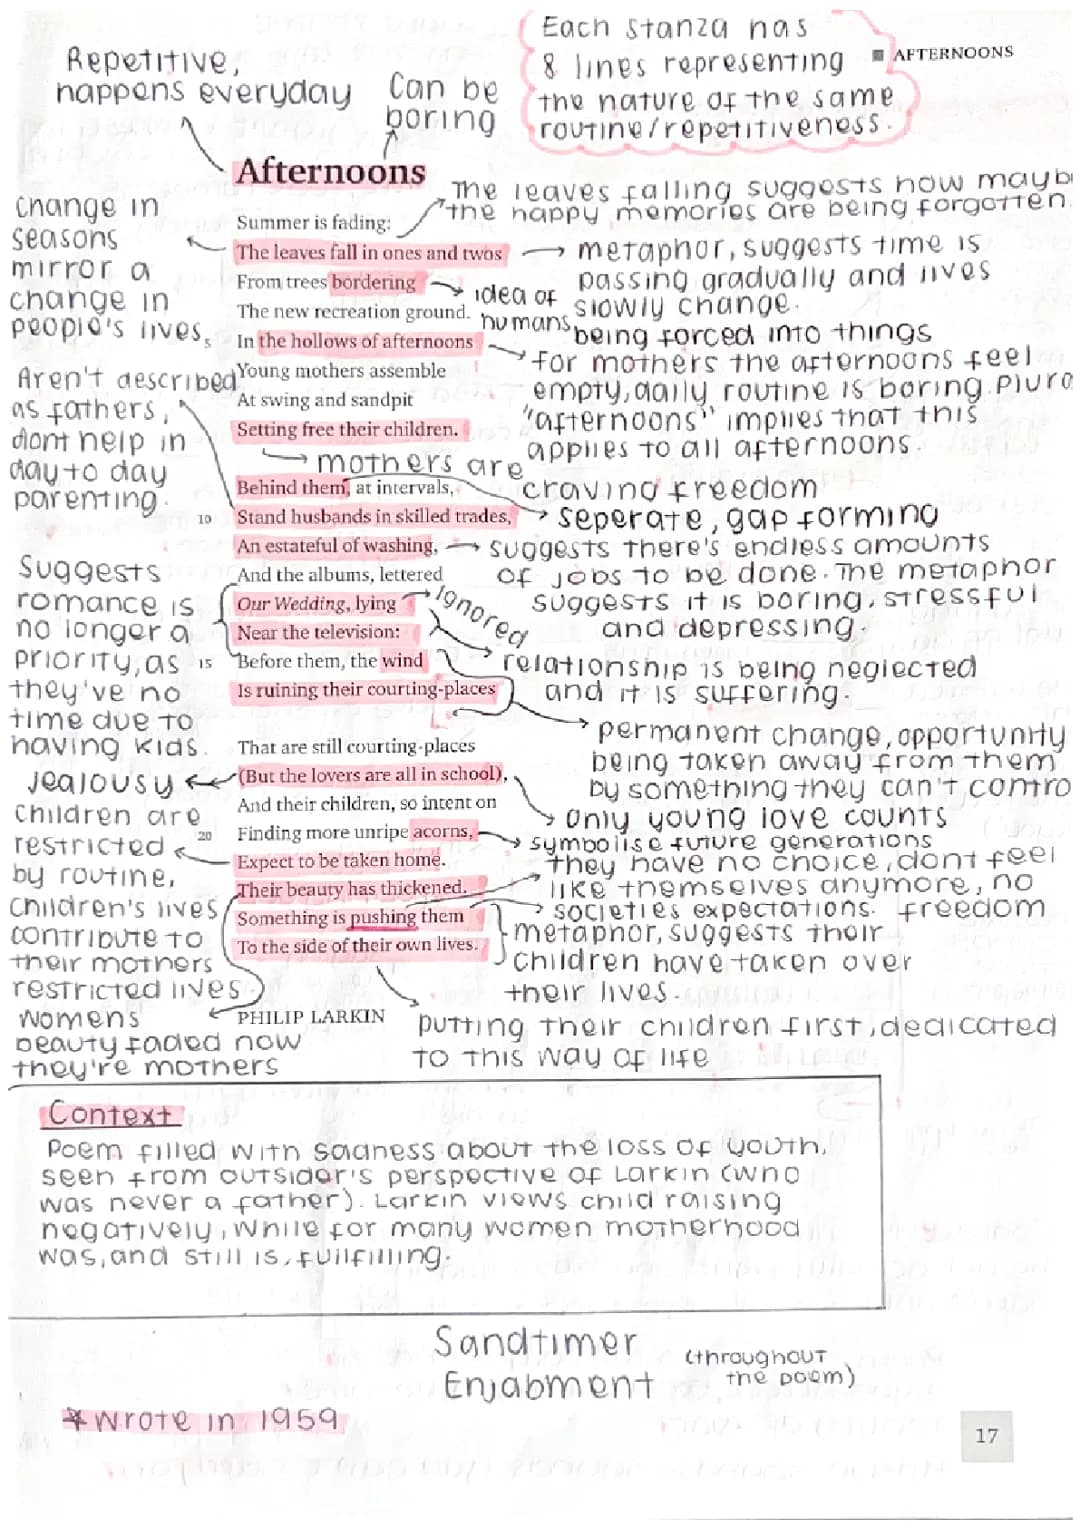 Each stanza has
8 lines representing
the nature of the same
routine/repetitiveness.
AFTERNOONS
Repetitive,
happens everyday
Can be
boring
Afternoons
The leaves falling suggests how mayb
the happy memories are being forgotten.
change in
seasons
mirror a
change in
people's lives.
Summer is fading:
The leaves fall in ones and twos
From trees bordering
The new recreation ground.
5 In the hollows of afternoons
Young mothers assemble
At swing and sandpit
Setting free their children.
metaphor, suggests time is
passing gradually and lives
slowly change.
idea of
humans
being forced into things
for mothers the afternoons feel
empty, daily routine is boring. Plura
"afternoons" implies that this
applies to all afternoons.
Aren't described
as fathers,
dont help in
day to day
parenting.
mothers are
craving freedom
Behind them, at intervals,
10 Stand husbands in skilled trades,
An estateful of washing,
And the albums, lettered
Our Wedding, lying
Near the television:
15 Before them, the wind
Is ruining their courting-places
seperate, gap forming
suggests there's endless amounts
of jobs to be done. The metaphor
suggests it is boring, stressful
and depressing.
ignored
relationship is being neglected
and it is suffering.
Suggests
romance is
no longer a
priority, as
they've no
time due to
having kids.
permanent change, opportunity
being taken away from them
by something they can't contro
That are still courting-places
(But the lovers are all in school),
And their children, so intent on
20 Finding more unripe acorns,
Expect to be taken home.
Their beauty has thickened.
Something is pushing them
To the side of their own lives.
jealousy
children are
restricted
by routine,
children's lives
contribute to
their mothers
restricted lives
only young love counts
symbolise future generations
they have no choice, dont feel
like themselves anymore, no
freedom
societies expectations.
metaphor, suggests their
children have taken over
their lives.
PHILIP LARKIN
womens
beauty faded now
they're mothers
putting their children first, dedicated
to this way of life
Context
Poem filled with sadness about the loss of youth,
seen from outsider's perspective of Larkin (who
was never a father). Larkin views child raising
negatively, while for many women motherhood
was, and still is, fulfilling.
Sandtimer
Enjabment
(throughout
the poem)
* Wrote in 1959
17